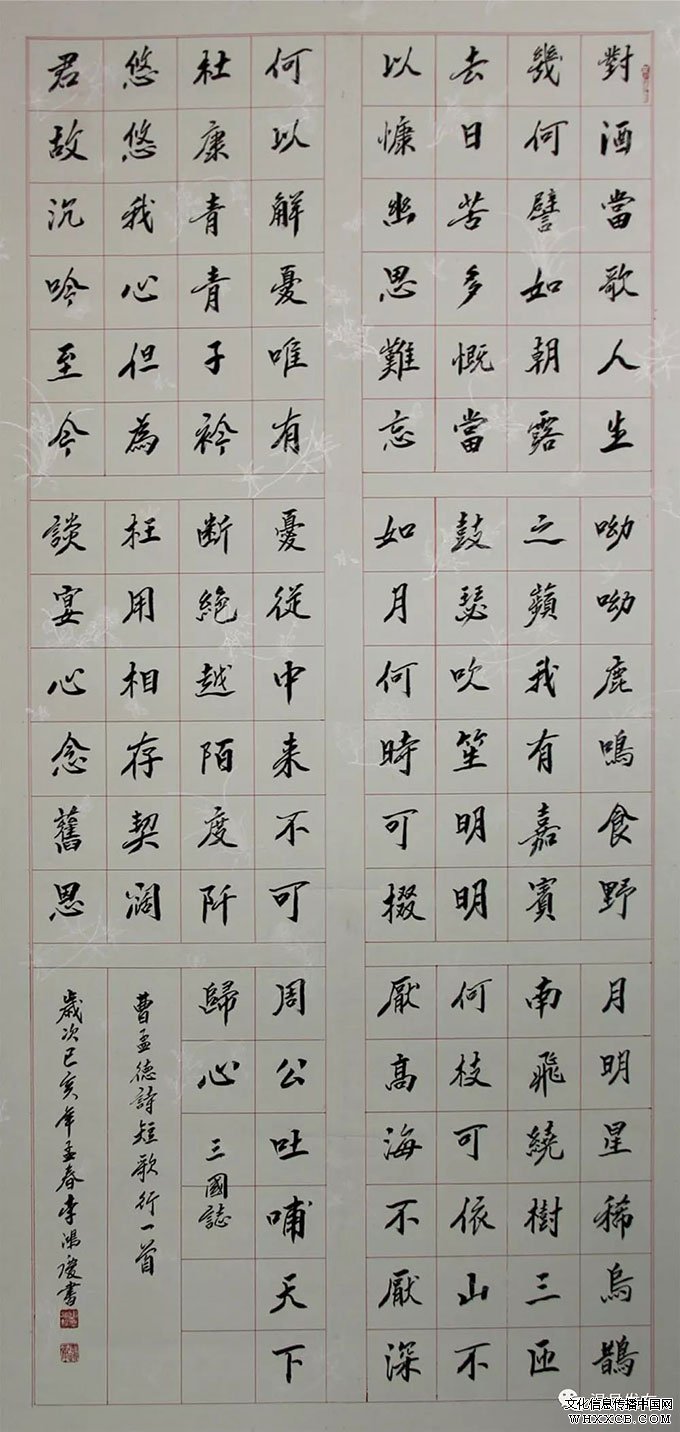 對酒當歌人生
幾何譬如朝露
去日苦多慨當
以慷幽思難忘
何以解憂唯有
杜康青青子衿
悠悠我心但為
君故沉吟至今
呦呦鹿鳴食野
之蘋我有嘉賓
鼓瑟吹笙明明
如月何時可掇
憂從中来不可
断絕越陌度阡
枉用相存契阔
談宴心念舊恩
月明星稀烏鵲
南飛繞樹三匝
何枝可依山不
厭高海不厭深
周公吐哺天下
歸心 三國誌
曹孟德詩短歌行一首
歲次己亥年孟春李鴻慶書
文化信息传播中国网
WHXXCB.COM